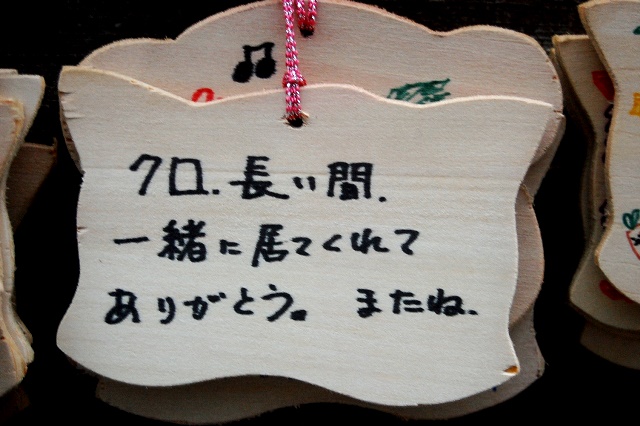 クロ.長い間.
一緒に居てくれて
ありがとう。 またね.